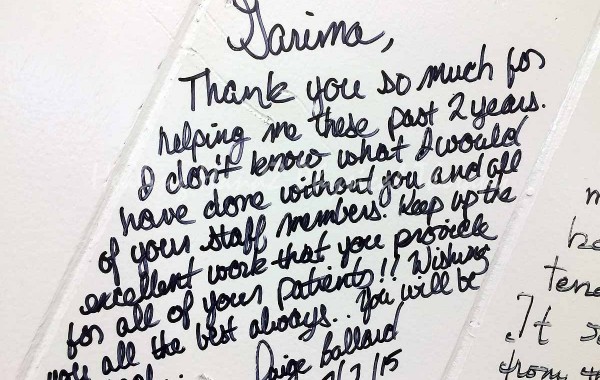 Garima,
Thank you so much for
helping me these past 2 years.
I don't know what I would
have done without you and all
of your staff members. Keep up the
excellent work that you provide
for all of your patients!! Wishing
you all the best always.. You will be
Paige Ballard
2/15
It
from